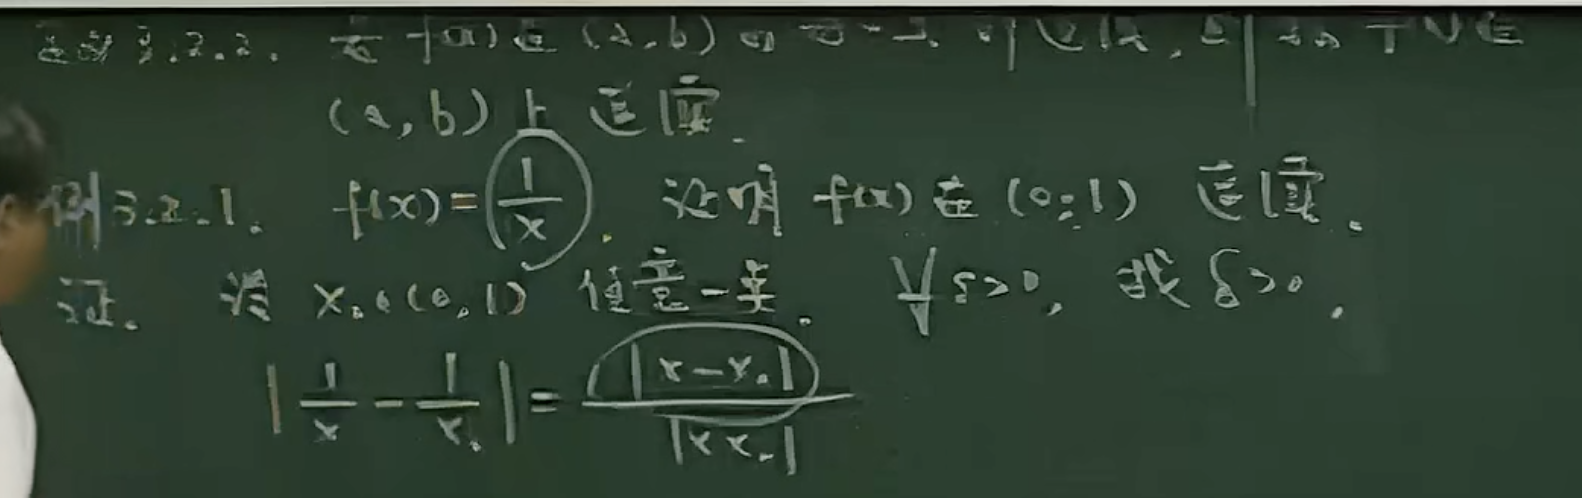 定义 3.2.2. 若 f(x) 在 (a,b) 的 每一点 都连续,则称 f 在
(a,b) 上 连续.
例 3.2.1. f(x) = 1/x. 证明 f(x) 在 (0,1) 连续.
证. 设 x₀∈(0,1) 任意一点. ∀ε>0, 找 δ>0.
|1/x - 1/x₀| = |x-x₀|/|xx₀|